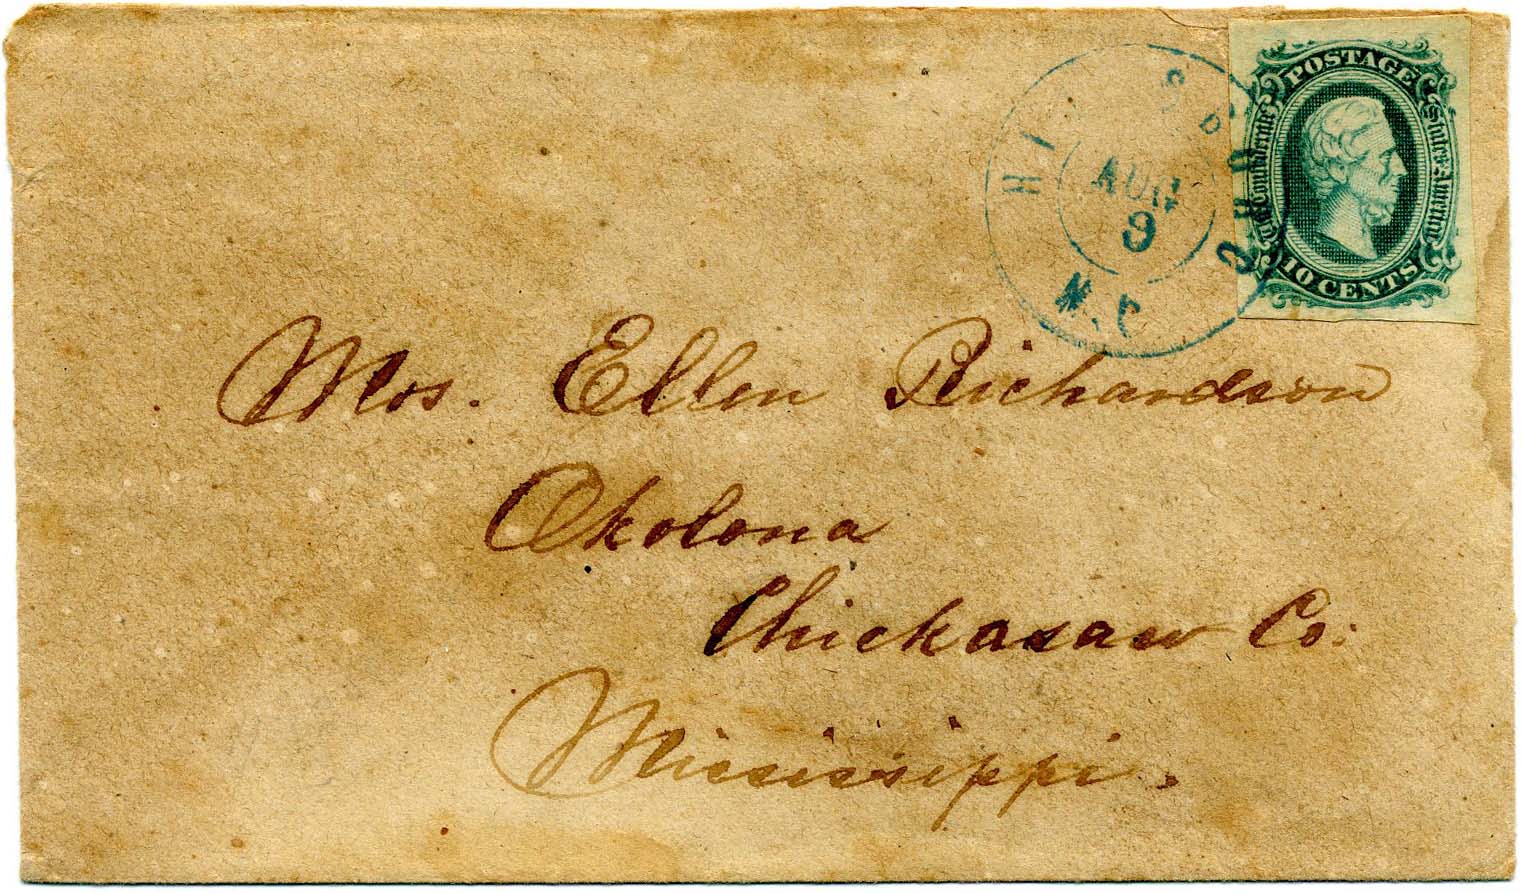 POSTAGE
The Confederate States of America
10 CENTS
AUG
9
N.C
Mrs. Ellen Richardson
Okolona
Chickasaw Co.
Mississippi.